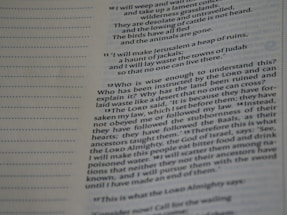 10 I will weep and wail for the
and take up a lament conc
wilderness grasslands.
They are desolate and untraveled,
and the lowing of cattle is not heard.
The birds have all fled
and the animals are gone.
11 "I will make Jerusalem a heap of ruins,
a haunt of jackals;
and I will lay waste the towns of Judah
so that no one can live there."
12 Who is wise enough to understand this?
Who has been instructed by the LORD and can
explain it? Why has the land been ruined and
laid waste like a desert that no one can cross?
13 The LORD said, "It is because they have for-
saken my law, which I set before them; they have
not obeyed me or followed my law. 14 Instead,
they have followed the stubbornness of their
hearts; they have followed the Baals, as their
ancestors taught them." 15 Therefore this is what
the LORD Almighty, the God of Israel, says: "See,
I will make this people eat bitter food and drink
poisoned water. 16 I will scatter them among na-
tions that neither they nor their ancestors have
known, and I will pursue them with the sword
until I have made an end of them."
17 This is what the LORD Almighty says:
"Consider now! Call for the wailing